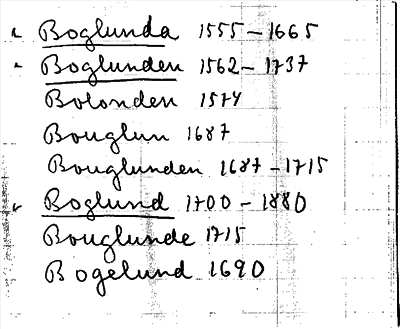 Boglunda 1555 – 1665
Boglunden 1562 – 1737
Bolonden 1574
Bouglun 1687
Bouglunden 1687 – 1715
Boglund 1700 – 1880
Bouglunde 1715
Bogelund 1690